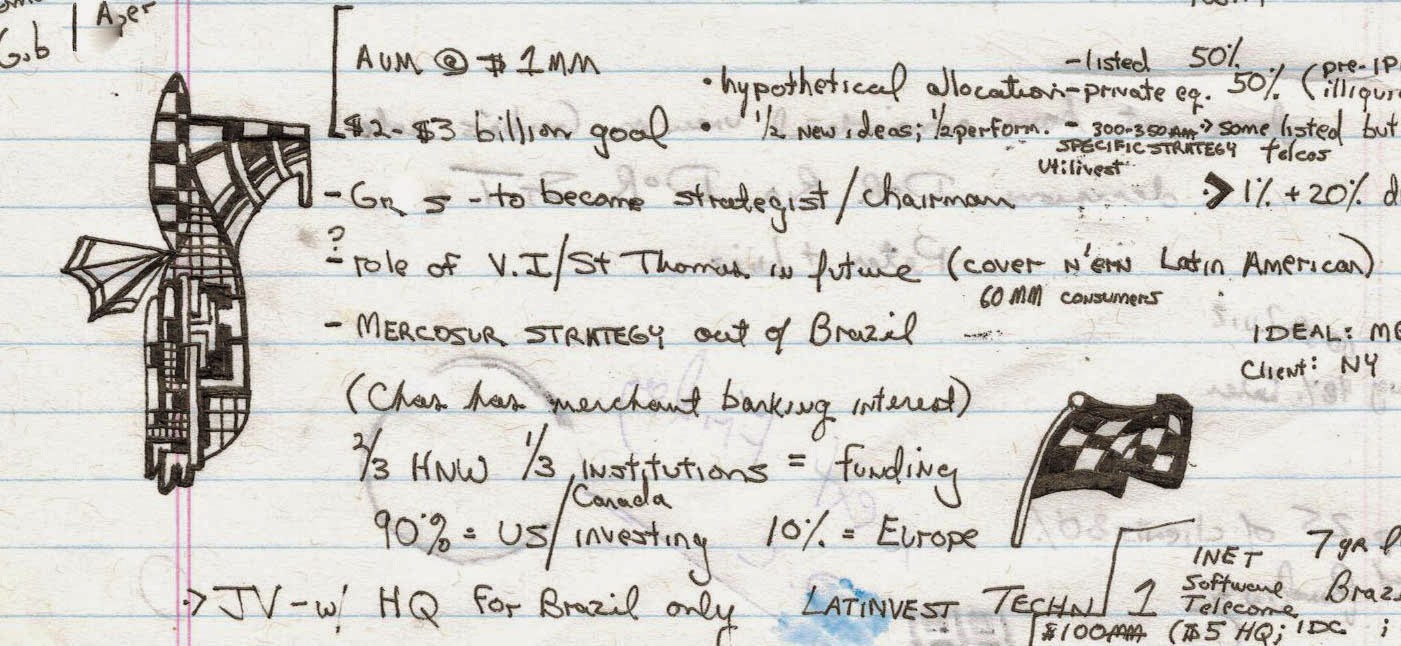 Gib | Azer
AUM @ $1MM
- listed 50%
• hypothetical allocation - private eq. 50% (pre-IP
illiqui
$2-$3 billion goal • 1/2 new ideas; 1/2 perform. - 300-350MM → some listed but
SPECIFIC STRATEGY telcos
Utilivest
- GR 5 - to become strategist/chairman → 1% + 20% d
? - role of V.I/St Thomas in future (cover N'ERN Latin American)
60 MM consumers
- MERCOSUR STRATEGY out of Brazil
IDEAL: ME
Client: NY
(Chas has merchant banking interest)
2/3 HNW 1/3 institutions = funding
Canada
90% = US/investing 10% = Europe
INET 7 yr
Software Braz
Telecome
→ JV - w/ HQ for Brazil only LATINVEST TECHN 1
$100MM ($5 HQ; IDC ;